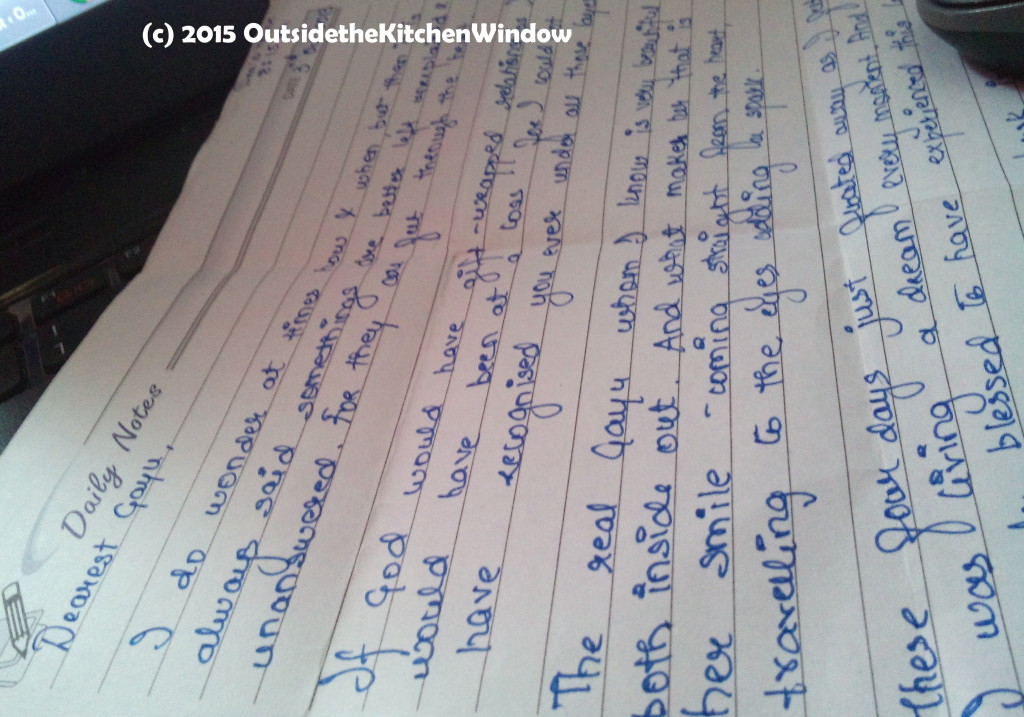 (c) 2015 OutsidetheKitchenWindow
Daily Notes
DATE
Dearest Gayu,
I do wonder at times how & when, but then I
always said somethings are better left
unanswered. For they can put through the
If God would have gift-wrapped relations
would have been at a loss
have recognised you ever under all those layers
The real Gayu whom I know is very beautiful
both inside out. And what makes her that is
her smile - coming straight from the heart,
travelling to the eyes adding a spark.
These four days just floated away as I
I was living a dream every moment. And
blessed to have experienced this